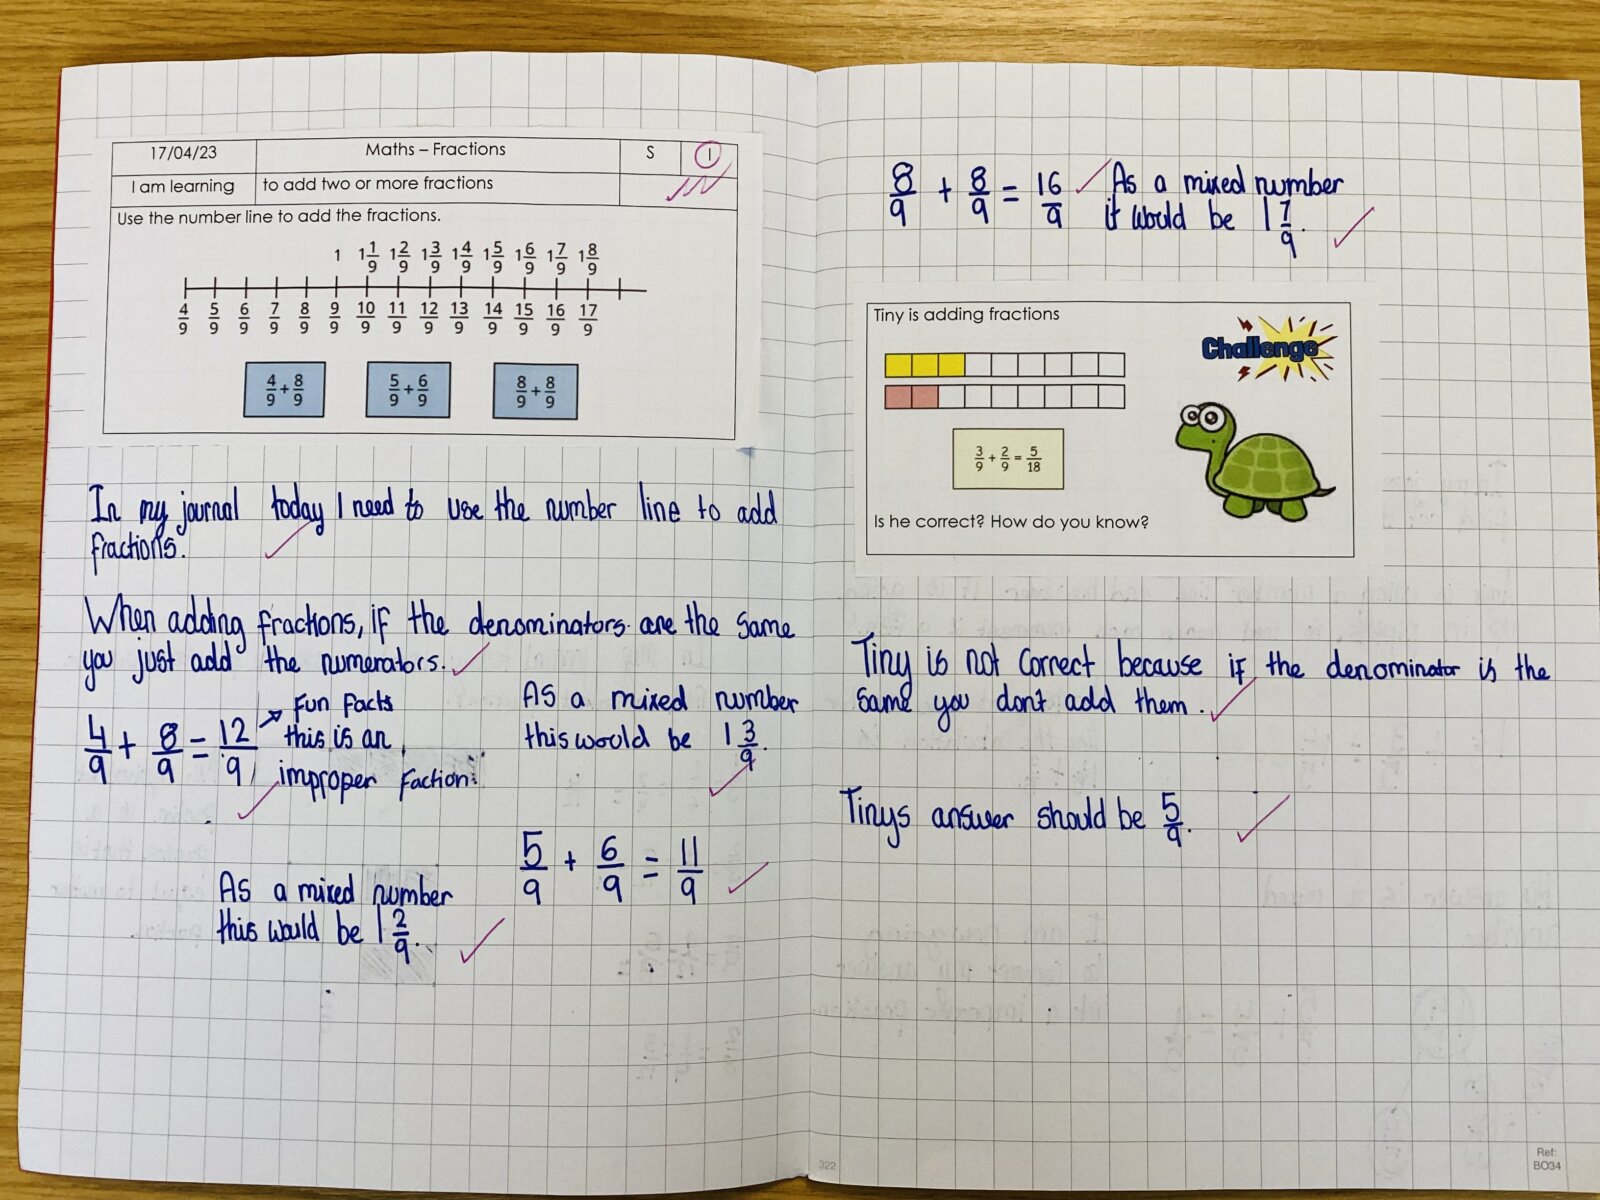 17/04/23 Maths – Fractions S I
I am learning to add two or more fractions
Use the number line to add the fractions.
1 1 1/9 1 2/9 1 3/9 1 4/9 1 5/9 1 6/9 1 7/9 1 8/9
4/9 5/9 6/9 7/9 8/9 9/9 10/9 11/9 12/9 13/9 14/9 15/9 16/9 17/9
4/9 + 8/9 5/9 + 6/9 8/9 + 8/9
In my journal today I need to use the number line to add
fractions.
When adding fractions, if the denominators are the same
you just add the numerators.
4/9 + 8/9 = 12/9
Fun Facts
this is an
improper Faction:
As a mixed number
this would be 1 3/9.
5/9 + 6/9 = 11/9
As a mixed number
this would be 1 2/9.
322
8/9 + 8/9 = 16/9 As a mixed number
it would be 1 7/9.
Tiny is adding fractions
Challenge
3/9 + 2/9 = 5/18
Is he correct? How do you know?
Tiny is not correct because if the denominator is the
same you don't add them.
Tinys answer should be 5/9.
Ref:
BO34